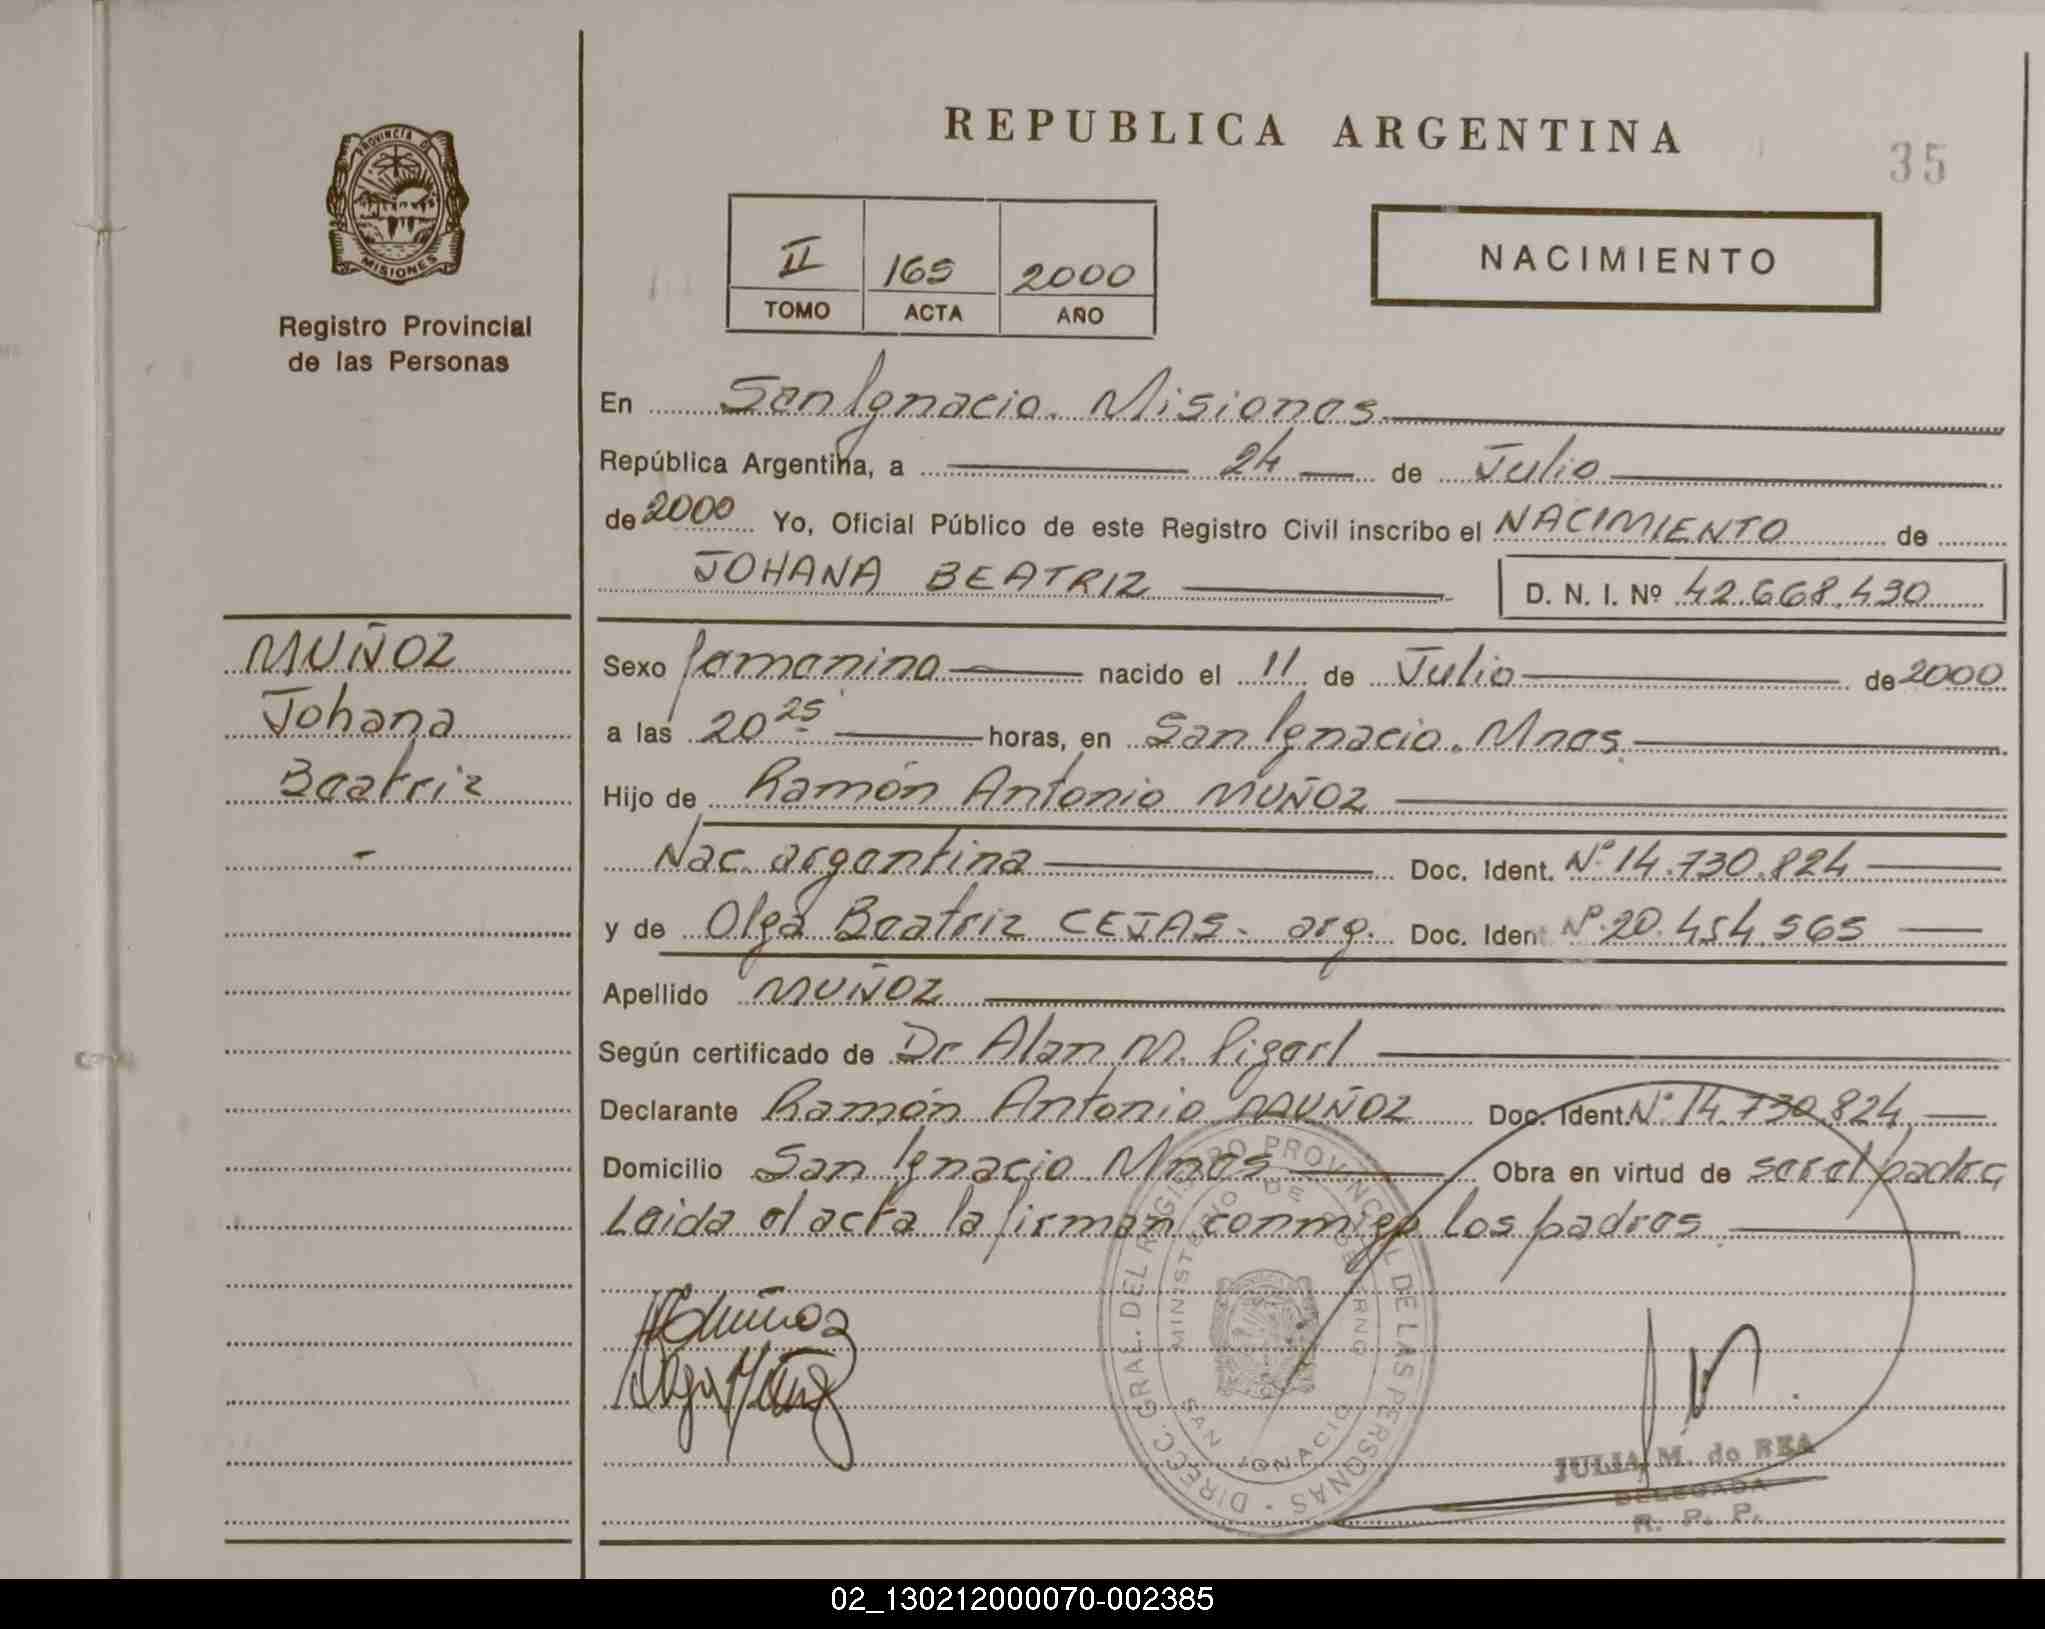 REPUBLICA ARGENTINA
35
PROVINCIA DE
MISIONES
Registro Provincial
de las Personas
II 165 2000
TOMO ACTA AÑO
NACIMIENTO
En San Ignacio. Misiones
República Argentina, a 24 de Julio
de 2000 Yo, Oficial Público de este Registro Civil inscribo el NACIMIENTO de
JOHANA BEATRIZ D. N. I. Nº 42.668.430
MUÑOZ
Johana
Beatriz
-
Sexo femenino nacido el 11 de Julio de 2000
a las 20 25 horas, en San Ignacio. Mnes
Hijo de Ramón Antonio MUÑOZ
Nac. argentina Doc. Ident. Nº 14.730.824
y de Olga Beatriz CEJAS - arg. Doc. Ident Nº 20.454.565
Apellido MUÑOZ
Según certificado de Dr Alan M.
Declarante Ramón Antonio MUÑOZ Doc. Ident. Nº 14.730.824
Domicilio San Ignacio Mnes Obra en virtud de ser el padre
Leida el acta la firman conmigo los padres
DIRECC. GRAL. DEL REGISTRO PROVINCIAL DE LAS PERSONAS
MINISTERIO DE GOBIERNO
SAN IGNACIO
Olga
JULIA M. de REA
DELEGADA
R. P. P.
02_130212000070-002385